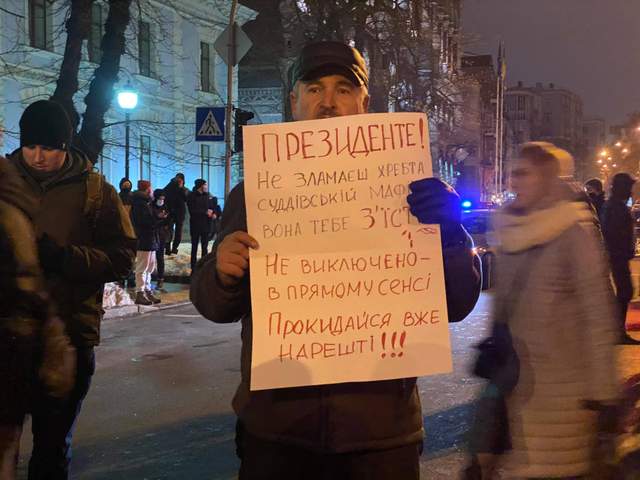 ПРЕЗИДЕНТЕ!
НЕ ЗЛАМАЄШ ХРЕБТА
СУДДІВСЬКІЙ
ВОНА ТЕБЕ З'ЇСТ
НЕ ВИКЛЮЧЕНО-
В ПРЯМОМУ СЕНСІ
ПРОКИДАЙСЯ ВЖЕ
НАРЕШТІ!!!